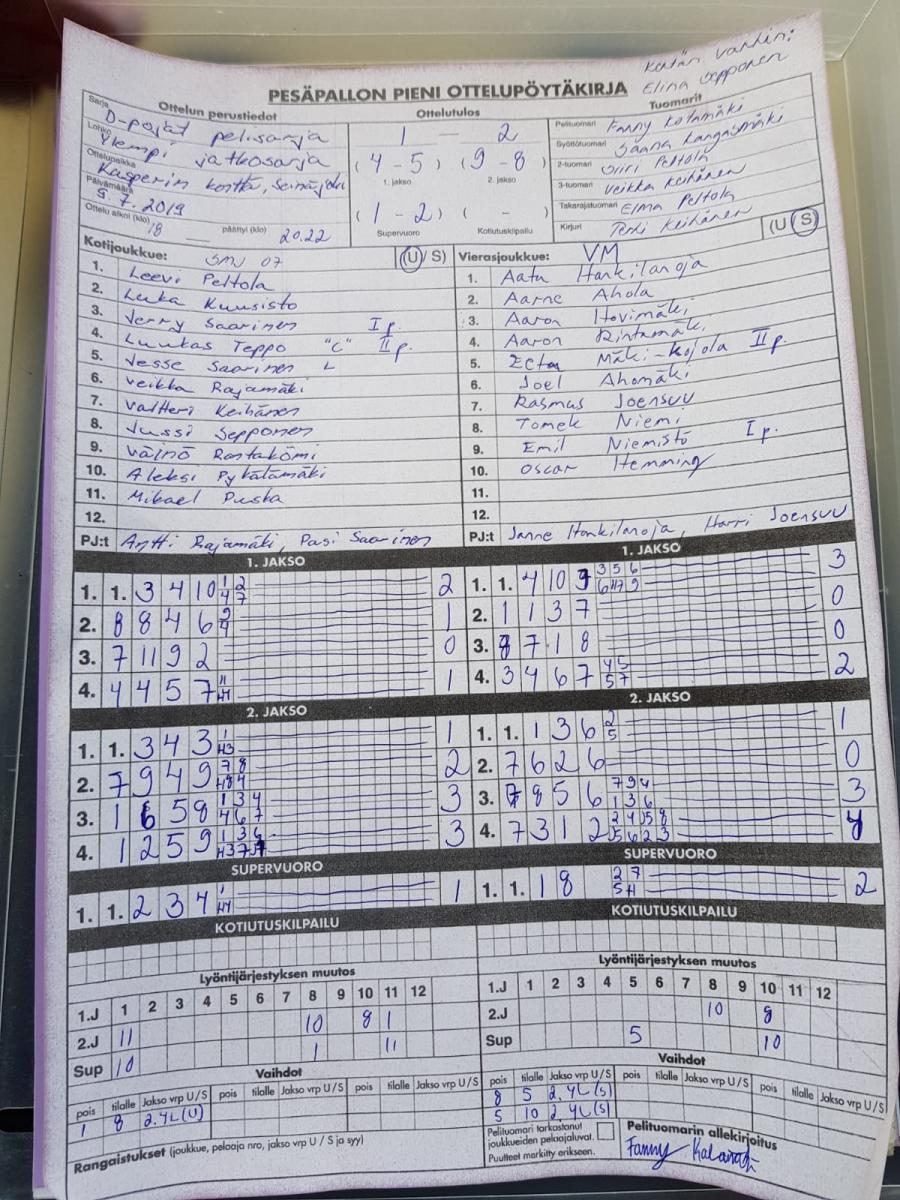 Kentän vanhin:
Elina Sepponen
PESÄPALLON PIENI OTTELUPÖYTÄKIRJA
Ottelun perustiedot
Sarja D-pojat pelisarja
Lohko Ylempi jatkosarja
Ottelupaikka Kasperin kenttä, Seinäjoki
Päivämäärä 5.7.2019
Ottelu alkoi (klo) 18 päättyi (klo) 20.22
Ottelutulos
1 — 2
(4 - 5) (9 - 8)
1. jakso 2. jakso
(1 - 2) ( - )
Supervuoro Kotiutuskilpailu
Tuomarit
Pelituomari Fanny
Syöttötuomari Sanna Kangasmäki
2-tuomari Siiri Peltola
3-tuomari Veikka Keihänen
Takarajatuomari Elma Peltola
Kirjuri Terhi Keihänen
(U S)
Kotijoukkue: SMJ 07 (U/ S)
1. Leevi Peltola
2. Luka Kuusisto
3. Jerry Saarinen I p.
4. Luukas Teppo "C" II p.
5. Jesse Saarinen L
6. Veikka Rajamäki
7. Valtteri Keihänen
8. Jussi Sepponen
9. Väinö Rantakömi
10. Aleksi Pykälämäki
11. Mikael Puska
12.
PJ:t Antti Rajamäki, Pasi Saarinen
Vierasjoukkue: VM
1. Aatu Hankilanoja
2. Aarne Ahola
3. Aaron Hovimäki
4. Aaron Rintamäki
5. Mäki-Kojola II p.
6. Joel Ahomäki
7. Rasmus Joensuu
8. Tomek Niemi
9. Emil Niemistö I p.
10. Oscar Hemming
11.
12.
PJ:t Janne Hankilanoja, Harri Joensuu
1. JAKSO
1. 1. 3 4 10 2
2. 8 8 4 6 1
3. 7 11 9 2 0
4. 4 4 5 7 1
1. JAKSO
1. 1. 4 10 3
2. 1 1 3 7 0
3. 8 7 1 8 0
4. 3 4 6 7 2
2. JAKSO
1. 1. 3 4 3 1
2. 7 9 4 9 2
3. 1 6 5 8 3
4. 1 2 5 9 3
2. JAKSO
1. 1. 1 3 6 1
2. 7 6 2 6 0
3. 8 5 6 3
4. 7 3 1 2 4
SUPERVUORO
1. 1. 2 3 4 1
SUPERVUORO
1. 1. 1 8 2
KOTIUTUSKILPAILU
KOTIUTUSKILPAILU
Lyöntijärjestyksen muutos
1.J 1 2 3 4 5 6 7 8 9 10 11 12
2.J 11 10 8 1
Sup 10 1 11
Lyöntijärjestyksen muutos
1.J 1 2 3 4 5 6 7 8 9 10 11 12
2.J 10 8
Sup 5 10
Vaihdot
pois tilalle Jakso vrp U/S pois tilalle Jakso vrp U/S pois tilalle Jakso vrp U/S
1 8 2.4L(U)
Vaihdot
pois tilalle Jakso vrp U/S pois tilalle Jakso vrp U/S pois tilalle Jakso vrp U/S
8 5 2.4L(S)
5 10 2.4L(S)
Rangaistukset (joukkue, pelaaja nro, jakso vrp U / S ja syy)
Pelituomari tarkastanut
joukkueiden pelaajaluvat.
Puutteet merkitty erikseen.
Pelituomarin allekirjoitus
Fanny